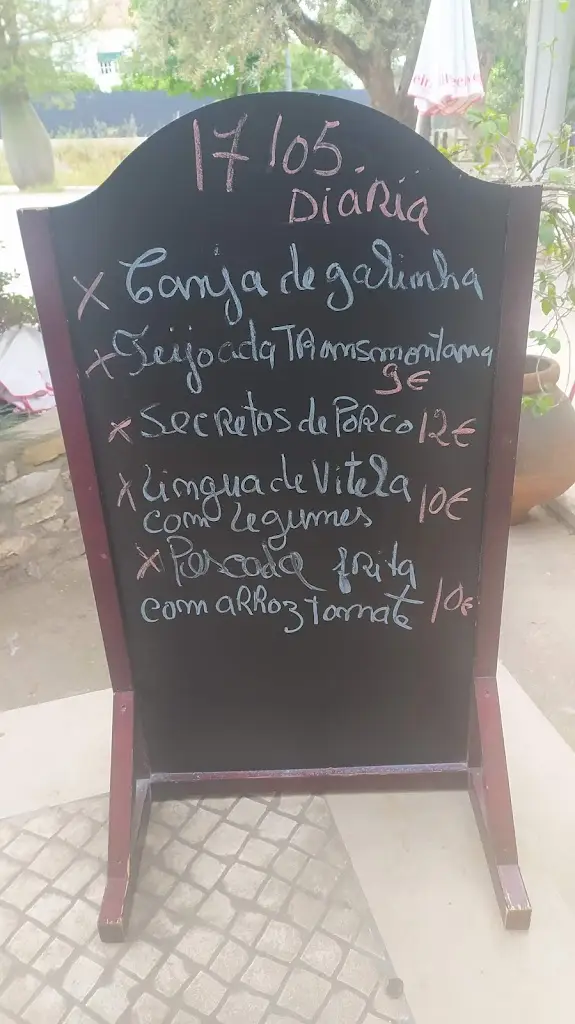 17/05.
Diária
x Canja de galinha
x Feijoada Transmontana
9€
x Secretos de Porco 12€
x Lingua de Vitela
com legumes 10€
x Pescada frita
com arroz tomate 10€